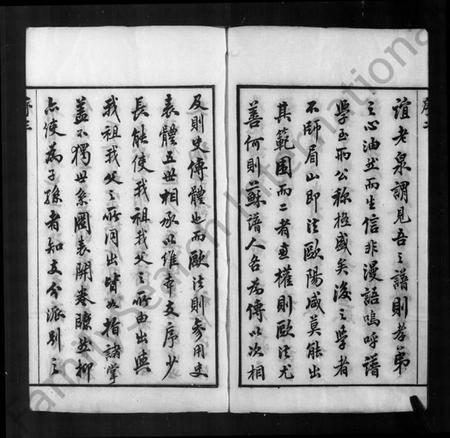 序二
誼老泉謂見吾之譜則孝弟
之心油然而生信非漫語嗚呼譜
學至兩公稱極盛矣後之學者
不師眉山即法歐陽咸莫能出
其範圍而二者並權則歐法尤
善何則蘇譜人各為傳以次相
及則史傳體也而歐法則參用史
表體五世相承以維席文序少
長能使我祖我父之所由出與
我祖我父之所同出皆如指諸掌
蓋不獨世系圖表開卷瞭然抑
亦使為子孫者知支分派別之
序三
FamilySearch International